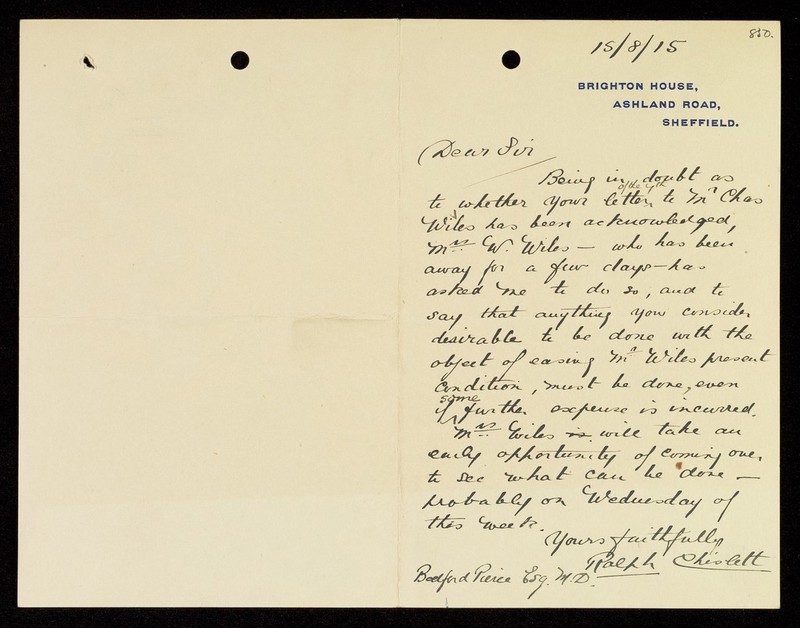 850.
15/8/15
BRIGHTON HOUSE,
ASHLAND ROAD,
SHEFFIELD.
Dear Sir
Being in doubt as
to whether your letter of the 9th to Mr Chas
Wiles has been acknowledged,
Mrs W. Wiles – who has been
away for a few days – has
asked me to do so, and to
say that anything you consider
desirable to be done with the
object of easing Mr Wiles present
condition, must be done, even
if some further expense is incurred.
Mrs Wiles is will take an
early opportunity of coming over
to see what can be done –
probably on Wednesday of
this week.
Yours faithfully
Ralph Chislett
Bedford Pierce Esq. M.D.